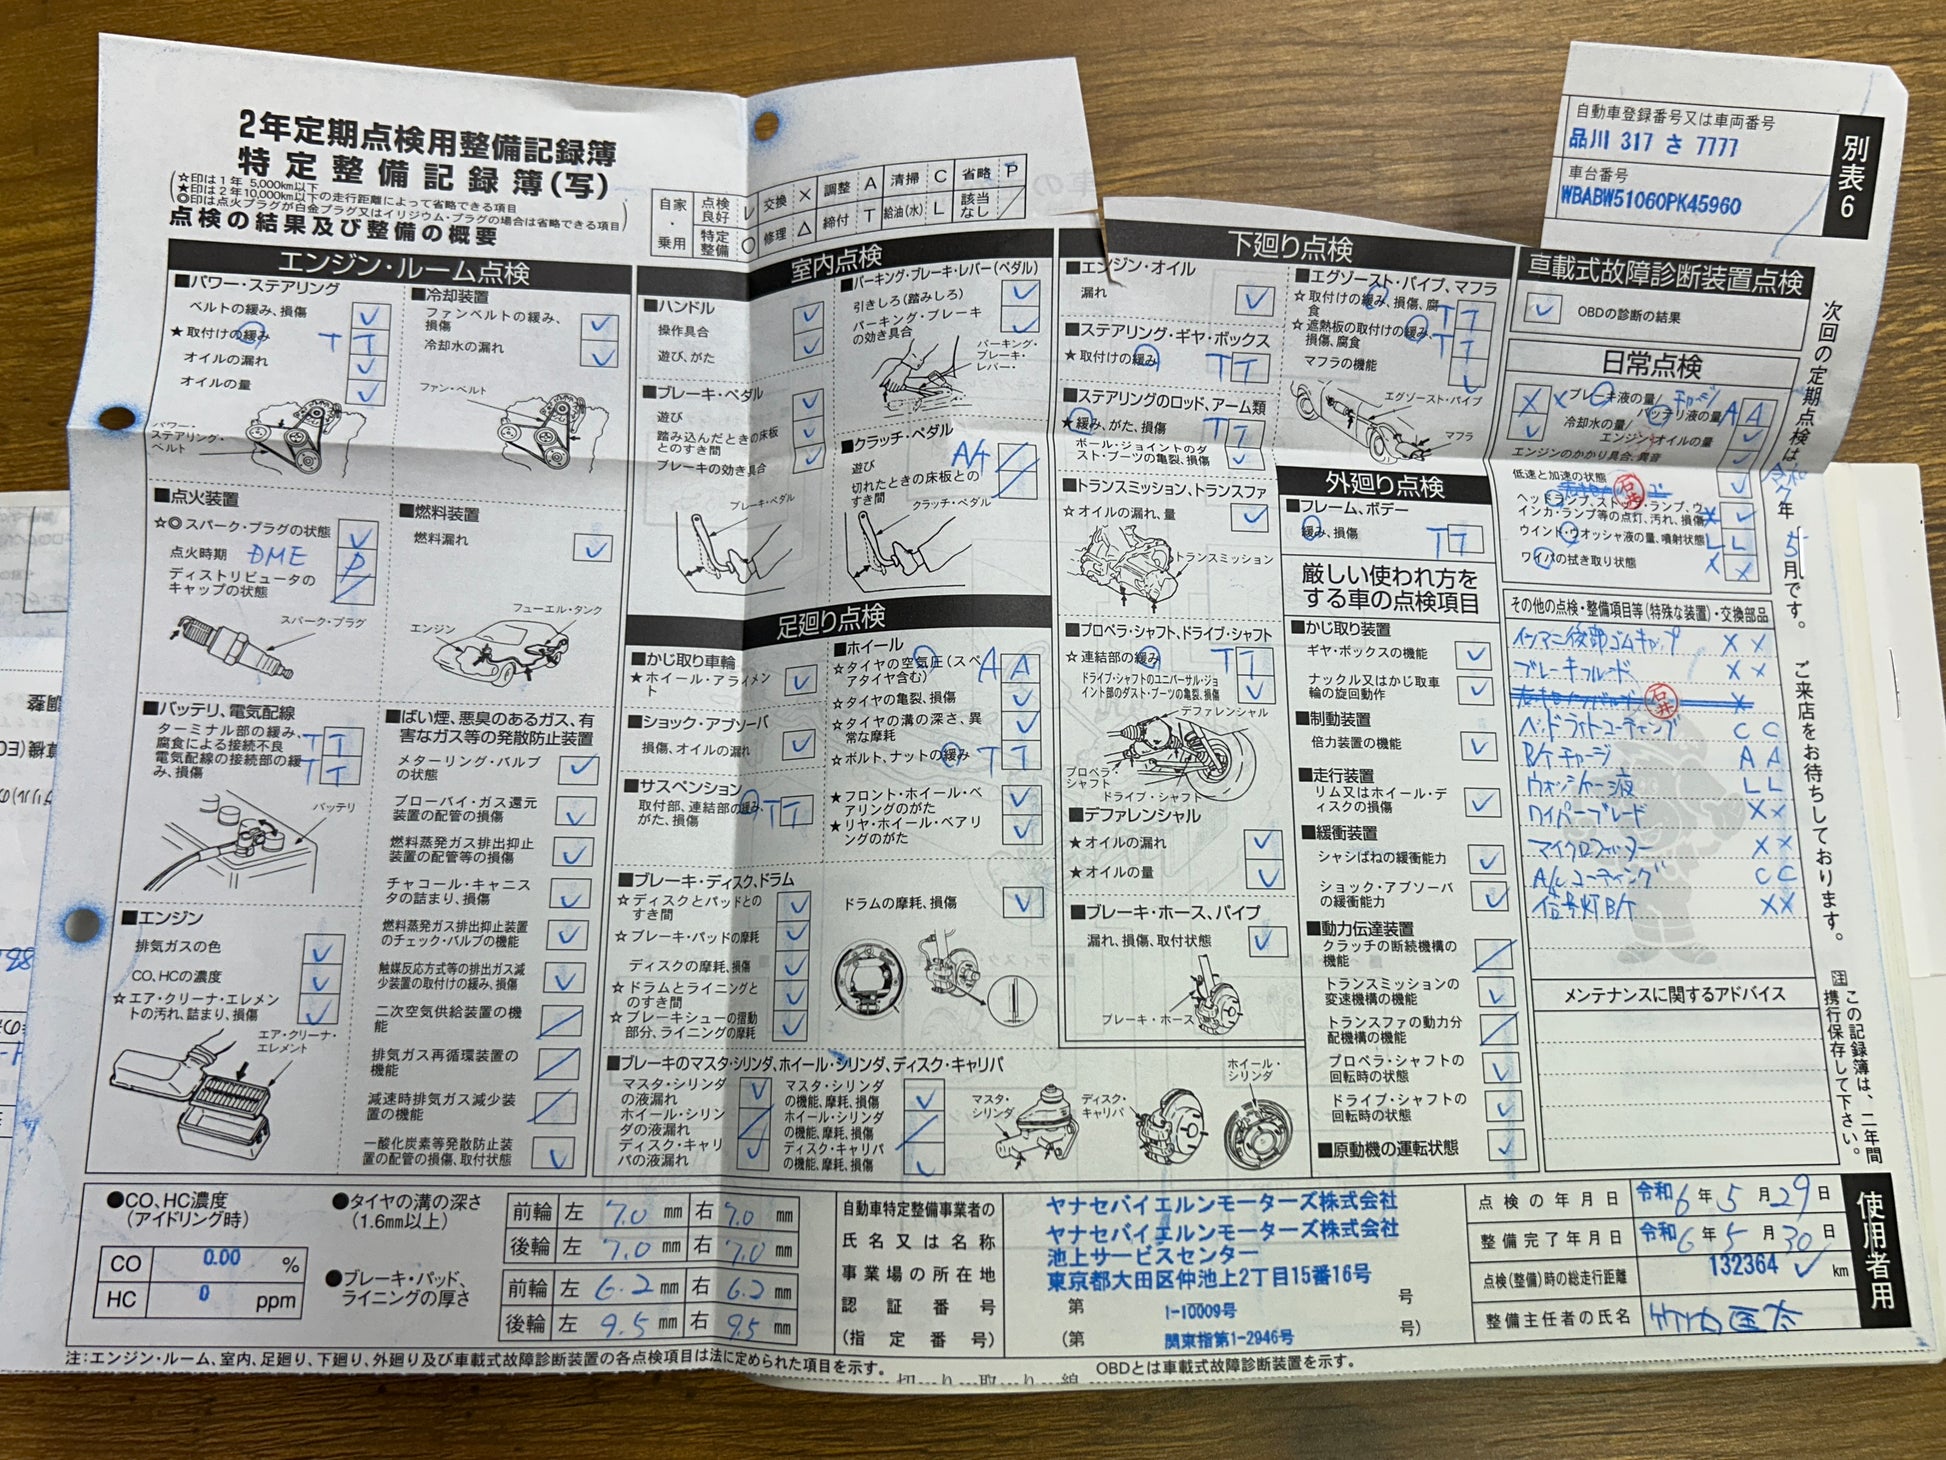 2年定期点検用整備記録簿
特定整備記録簿(写)
☆印は1年 5,000km以下
★印は2年10,000km以下の走行距離によって省略できる項目
◎印は点火プラグが白金プラグ又はイリジウム・プラグの場合は省略できる項目
点検の結果及び整備の概要
自家・乗用
点検良好 レ 交換 × 調整 A 清掃 C 省略 P
特定整備 ○ 修理 △ 締付 T 給油(水) L 該当なし /
自動車登録番号又は車両番号
品川 317 さ 7777
車台番号
WBABW51060PK45960
別表6
エンジン・ルーム点検
■パワー・ステアリング
ベルトの緩み、損傷 ✓
★取付けの緩み T T
オイルの漏れ ✓
オイルの量 ✓
パワー・ステアリング・ベルト
■冷却装置
ファンベルトの緩み、損傷 ✓
冷却水の漏れ ✓
ファン・ベルト
■点火装置
☆◎スパーク・プラグの状態 ✓
点火時期 DME P
ディストリビュータのキャップの状態 /
スパーク・プラグ
■燃料装置
燃料漏れ ✓
フューエル・タンク
エンジン
■バッテリ、電気配線
ターミナル部の緩み、腐食による接続不良 T T
電気配線の接続部の緩み、損傷 T T
バッテリ
■エンジン
排気ガスの色 ✓
CO、HCの濃度 ✓
☆エア・クリーナ・エレメントの汚れ、詰まり、損傷 ✓
エア・クリーナ・エレメント
■ばい煙、悪臭のあるガス、有害なガス等の発散防止装置
メターリング・バルブの状態 ✓
ブローバイ・ガス還元装置の配管の損傷 ✓
燃料蒸発ガス排出抑止装置の配管等の損傷 ✓
チャコール・キャニスタの詰まり、損傷 ✓
燃料蒸発ガス排出抑止装置のチェック・バルブの機能 ✓
触媒反応方式等の排出ガス減少装置の取付けの緩み、損傷 ✓
二次空気供給装置の機能 /
排気ガス再循環装置の機能 /
減速時排気ガス減少装置の機能 /
一酸化炭素等発散防止装置の配管の損傷、取付状態 ✓
室内点検
■ハンドル
操作具合 ✓
遊び、がた ✓
■ブレーキ・ペダル
遊び ✓
踏み込んだときの床板とのすき間 ✓
ブレーキの効き具合 ✓
ブレーキ・ペダル
■パーキング・ブレーキ・レバー(ペダル)
引きしろ(踏みしろ) ✓
パーキング・ブレーキの効き具合 ✓
パーキング・ブレーキ・レバー・
■クラッチ・ペダル
遊び A/t /
切れたときの床板とのすき間 /
クラッチ・ペダル
足廻り点検
■かじ取り車輪
★ホイール・アライメント ✓
■ショック・アブソーバ
損傷、オイルの漏れ ✓
■サスペンション
取付部、連結部の緩み、がた、損傷 T T
■ホイール
☆タイヤの空気圧(スペアタイヤ含む) A A
☆タイヤの亀裂、損傷 ✓
☆タイヤの溝の深さ、異常な摩耗 ✓
☆ボルト、ナットの緩み T T
★フロント・ホイール・ベアリングのがた ✓
★リヤ・ホイール・ベアリングのがた ✓
■ブレーキ・ディスク、ドラム
☆ディスクとパッドとのすき間 ✓
☆ブレーキ・パッドの摩耗 ✓
ディスクの摩耗、損傷 ✓
☆ドラムとライニングとのすき間 ✓
☆ブレーキシューの摺動部分、ライニングの摩耗 ✓
ドラムの摩耗、損傷 ✓
■ブレーキのマスタ・シリンダ、ホイール・シリンダ、ディスク・キャリパ
マスタ・シリンダの液漏れ ✓
ホイール・シリンダの液漏れ /
ディスク・キャリパの液漏れ ✓
マスタ・シリンダの機能、摩耗、損傷 ✓
ホイール・シリンダの機能、摩耗、損傷 /
ディスク・キャリパの機能、摩耗、損傷 ✓
マスタ・シリンダ
ディスク・キャリパ
ホイール・シリンダ
下廻り点検
■エンジン・オイル
漏れ ✓
■ステアリング・ギヤ・ボックス
★取付けの緩み T T
■ステアリングのロッド、アーム類
★緩み、がた、損傷 T T
ボール・ジョイントのダスト・ブーツの亀裂、損傷 ✓
■トランスミッション、トランスファ
☆オイルの漏れ、量 ✓
トランスミッション
■プロペラ・シャフト、ドライブ・シャフト
☆連結部の緩み T T
ドライブ・シャフトのユニバーサル・ジョイント部のダスト・ブーツの亀裂、損傷 ✓
デファレンシャル
プロペラ・シャフト
ドライブ・シャフト
■デファレンシャル
★オイルの漏れ ✓
★オイルの量 ✓
■ブレーキ・ホース、パイプ
漏れ、損傷、取付状態 ✓
ブレーキ・ホース
■エグゾースト・パイプ、マフラ
☆取付けの緩み、損傷、腐食 T T
☆遮熱板の取付けの緩み、損傷、腐食 T T
マフラの機能 ✓
エグゾースト・パイプ
マフラ
外廻り点検
■フレーム、ボデー
緩み、損傷 T T
厳しい使われ方をする車の点検項目
■かじ取り装置
ギヤ・ボックスの機能 ✓
ナックル又はかじ取車輪の旋回動作 ✓
■制動装置
倍力装置の機能 ✓
■走行装置
リム又はホイール・ディスクの損傷 ✓
■緩衝装置
シャシばねの緩衝能力 ✓
ショック・アブソーバの緩衝能力 ✓
■動力伝達装置
クラッチの断続機構の機能 /
トランスミッションの変速機構の機能 ✓
トランスファの動力分配機構の機能 /
プロペラ・シャフトの回転時の状態 ✓
ドライブ・シャフトの回転時の状態 ✓
■原動機の運転状態 ✓
車載式故障診断装置点検
✓ OBDの診断の結果
日常点検
X X ブレーキ液の量/ チャージ
✓ 冷却水の量/ バッテリ液の量 A A
エンジン・オイルの量 ✓
エンジンのかかり具合、異音 ✓
低速と加速の状態 ✓
石井
ヘッドランプ、ストップ・ランプ、ウインカ・ランプ等の点灯、汚れ、損傷 X ✓
ウインド・ウオッシャ液の量、噴射状態 L L
ワイパの拭き取り状態 X X
その他の点検・整備項目等(特殊な装置)・交換部品
インマニ後部ゴムキャップ X X
ブレーキフルード X X
石井 X
ヘッドライトコーティング C C
B/tチャージ A A
ウォッシャー液 L L
ワイパーブレード X X
マイクロフィルター X X
A/Cコーティング C C
信号灯B/t X X
メンテナンスに関するアドバイス
次回の定期点検は令和7年5月です。 ご来店をお待ちしております。
注 この記録簿は、二年間携行保存して下さい。
●CO、HC濃度(アイドリング時)
CO 0.00 %
HC 0 ppm
●タイヤの溝の深さ(1.6mm以上)
前輪 左 7.0 mm 右 7.0 mm
後輪 左 7.0 mm 右 7.0 mm
●ブレーキ・パッド、ライニングの厚さ
前輪 左 6.2 mm 右 6.2 mm
後輪 左 9.5 mm 右 9.5 mm
自動車特定整備事業者の氏名又は名称
事業場の所在地
認証番号
(指定番号)
ヤナセバイエルンモーターズ株式会社
ヤナセバイエルンモーターズ株式会社
池上サービスセンター
東京都大田区仲池上2丁目15番16号
第 1-10009号 号
(第 関東指第1-2946号 号)
点検の年月日 令和6年5月29日
整備完了年月日 令和6年5月30日
点検(整備)時の総走行距離 132364 ✓ km
整備主任者の氏名
使用者用
注:エンジン・ルーム、室内、足廻り、下廻り、外廻り及び車載式故障診断装置の各点検項目は法に定められた項目を示す。
OBDとは車載式故障診断装置を示す。
切り取り線